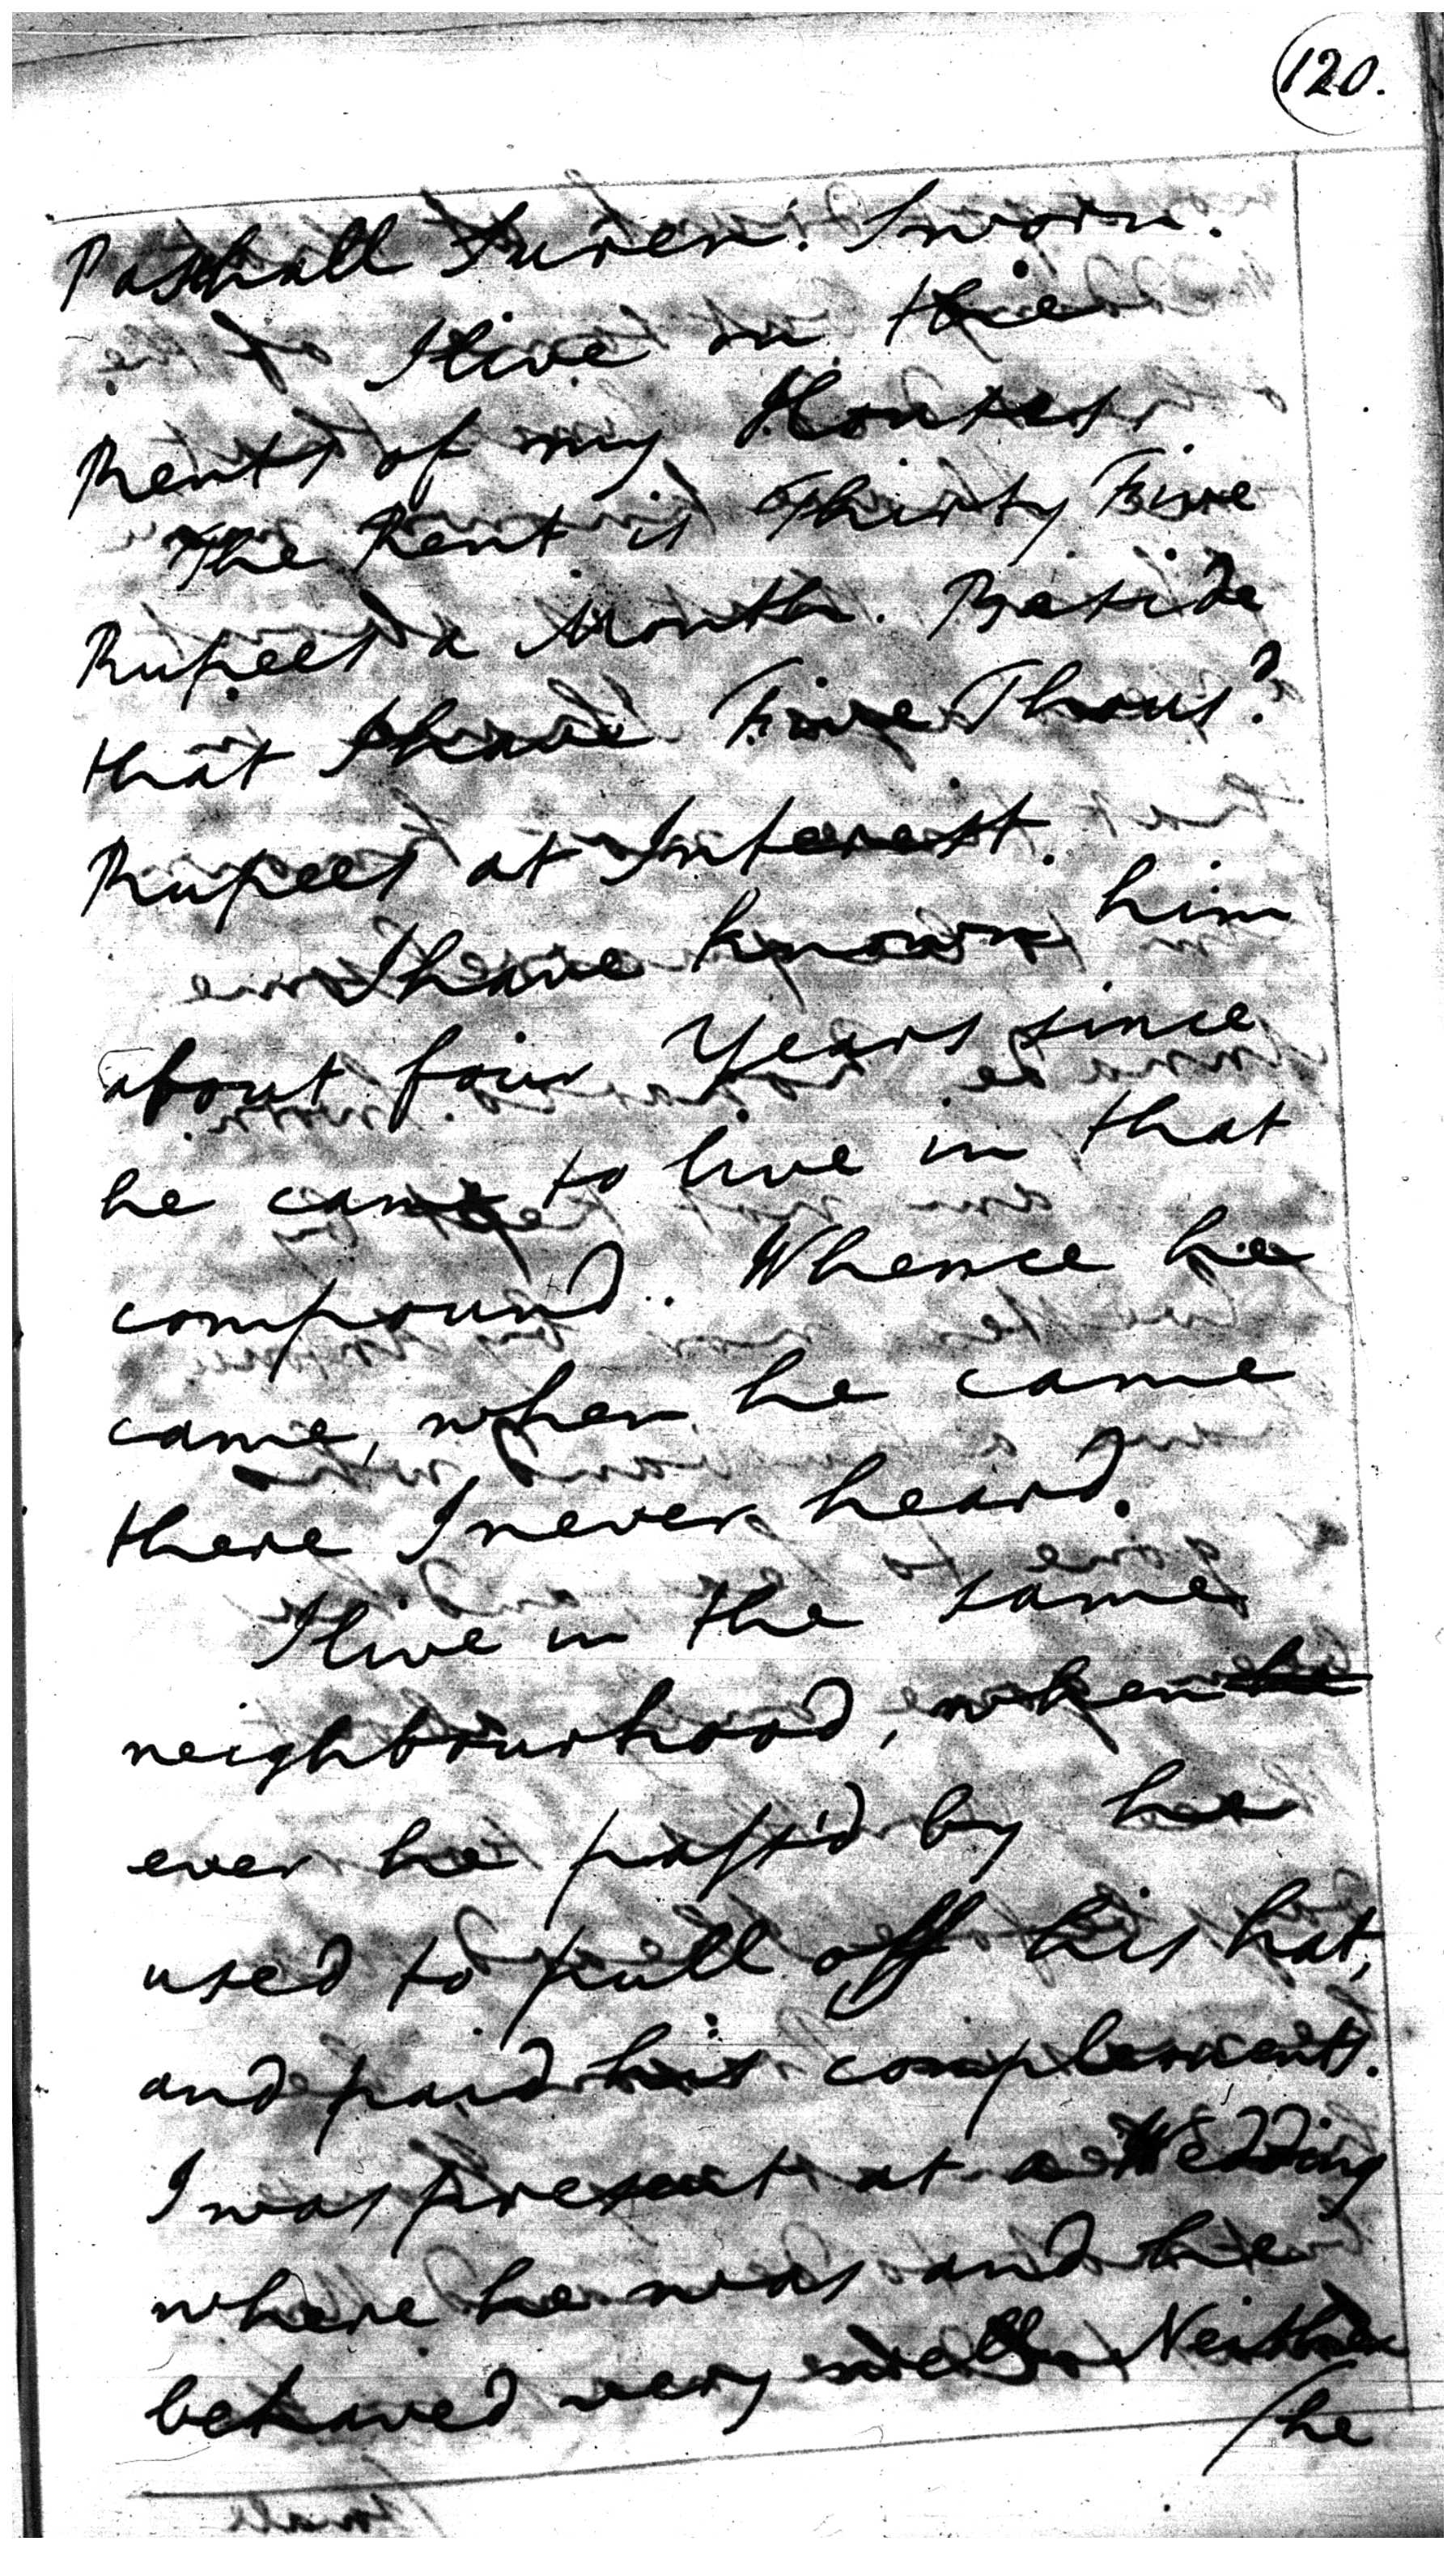 120.
Paskall Suren. Sworn.
I live on the
Rents of my Houses.
The Rent is Thirty Five
Rupees a Month. Beside
that I have Five Thousd.
Rupees at Interest.
I have known him
about four Years since
he came to live in that
compound. Whence he
came, when he came
there I never heard.
I live in the same
neighbourhood, when he
ever he pass'd by he
used to pull off his hat,
and paid his complements.
I was present at a Wedding
where he was and he
behaved very well. Neither
he